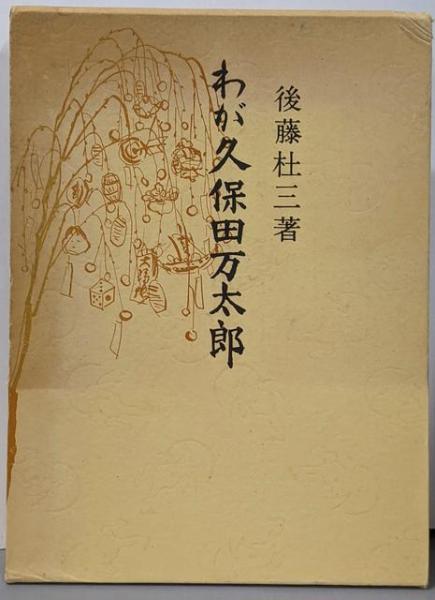 後藤杜三著
わが久保田万太郎